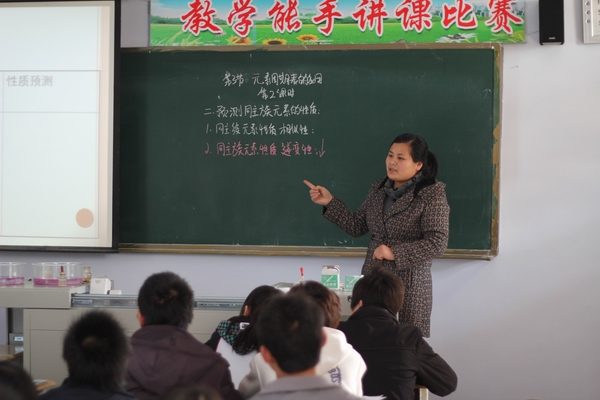 教学能手讲课比赛
性质预测
第3节 元素周期表的应用
第2课时
二.预测同主族元素的性质
1.同主族元素性质 相似性:
2.同主族元素性质 递变性: